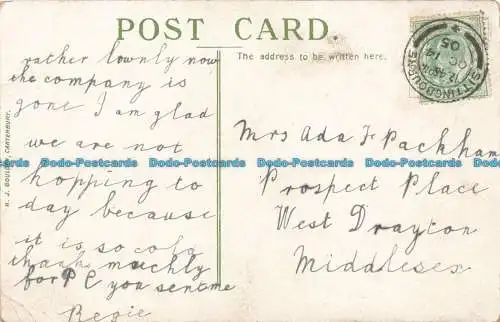 POST CARD.
The address to be written here.
rather lownly now
the company is
gone I am glad
we are not
hopping to
day because
it is so cold
thank muchly
for P C you sent me
Regie
Mrs Ada F Packham
Prospect Place
West Drayton
Middlesex
SITTINGBOURNE
OC 14
05
CANTERBURY.
Dodo-Postcards Dodo-Postcards Dodo-Postcards Dodo-Postcards